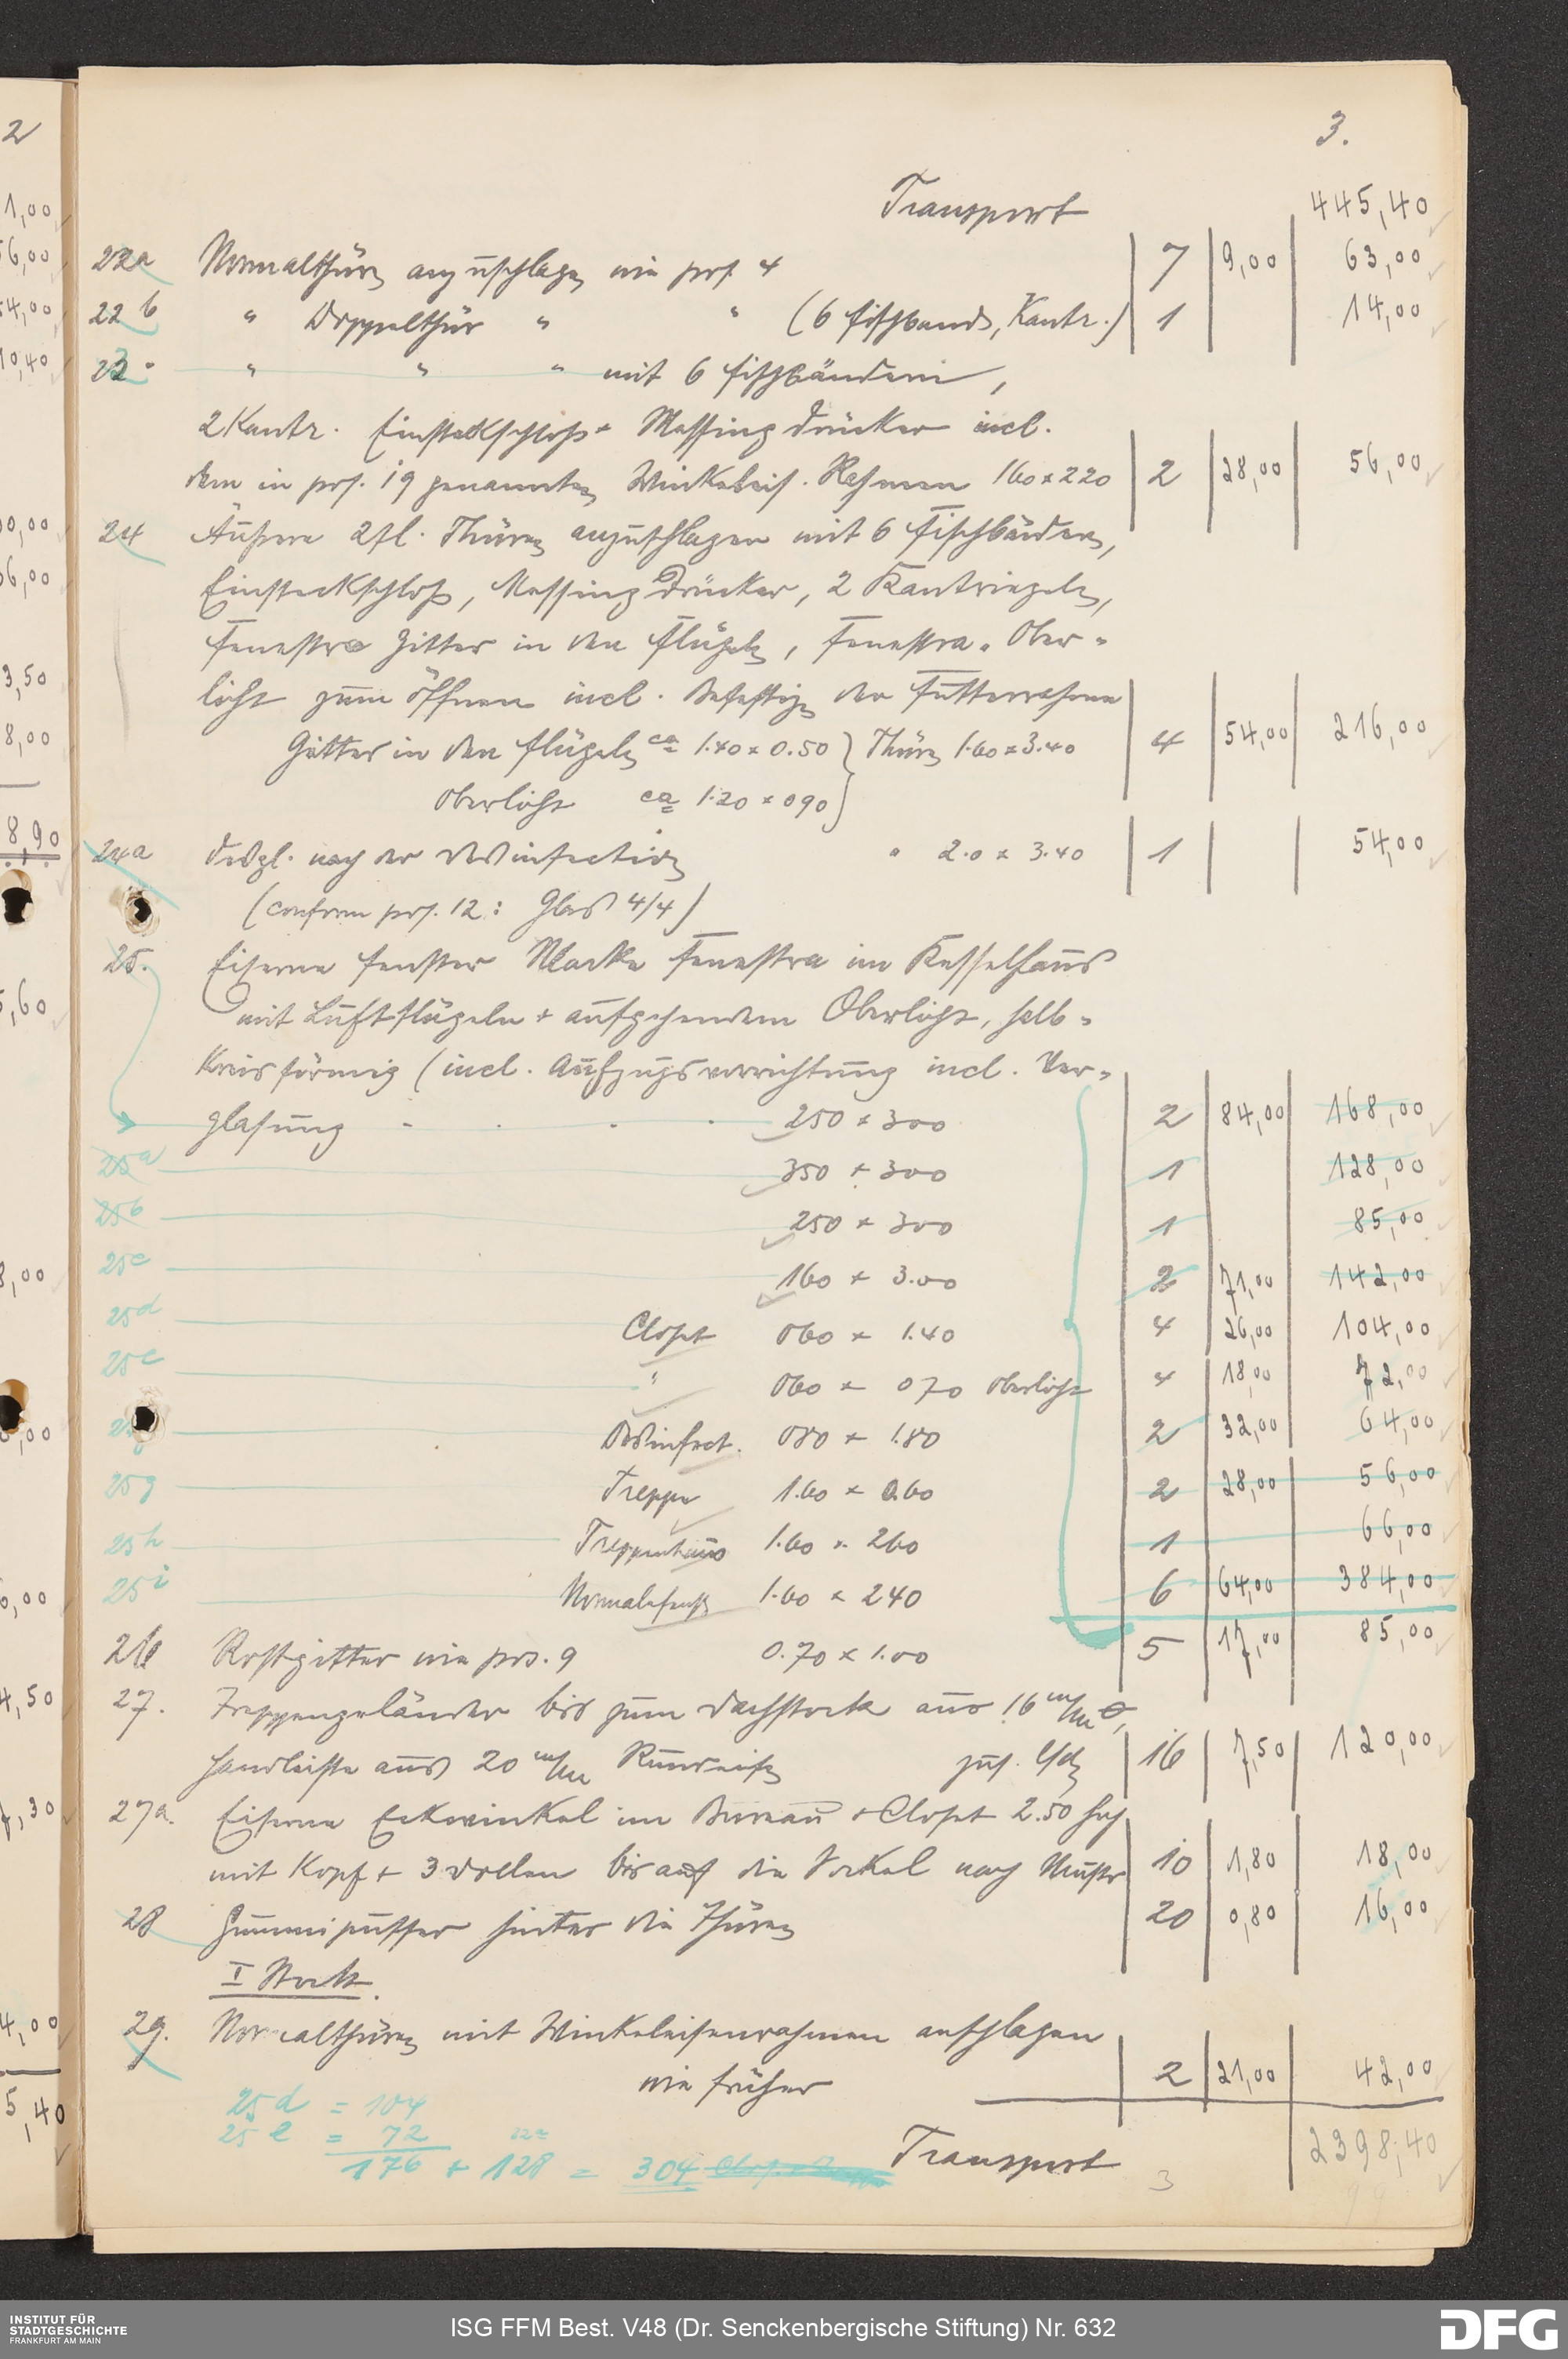 3.
Transport 445,40
22a Normalthüren anzuschlagen wie pos. 4 7 9,00 63,00
22b " Doppelthür " " (6 Fischbands, Kantr.) 1 14,00
23. " " " mit 6 Fischbändern,
2 Kantr. Einsteckschloß + Messingdrücker incl.
dem in pos. 19 genannten Winkeleis. Rahmen 160 x 220 2 28,00 56,00
24 Äußere 2fl. Thüren anzuschlagen mit 6 Fischbändern,
Einsteckschloß, Messing Drücker, 2 Kantriegeln,
Fenestra Gitter in den Flügeln, Fenestra-Ober-
licht zum öffnen incl. Befestig. der Futterrahmen
Gitter in den Flügeln ca 1.40 x 0.50 } Thüren 1.60 x 3.40 4 54,00 216,00
Oberlicht ca 1.20 x 090 }
24a Desgl. nach der Desinfection " 2.0 x 3.40 1 54,00
(conform pos. 12: Glas 4/4)
25. Eiserne Fenster Marke Fenestra im Kesselhaus
mit Luftflügeln + aufgehendem Oberlicht, halb-
kreisförmig (incl. Aufzugsvorrichtung incl. Ver-
glasung 250 x 300 2 84,00 168,00
25a 350 x 300 1 128,00
25b 250 x 300 1 85,00
25c 160 x 3.00 2 71,00 142,00
25d Closet 060 x 1.40 4 26,00 104,00
25e " 060 x 070 Oberlicht 4 18,00 72,00
Desinfect. 080 x 1.80 2 32,00 64,00
25g Treppe 1.60 x 0.60 2 28,00 56,00
25h Treppenhaus 1.60 x 260 1 66,00
25i Normalfenst. 1.60 x 240 6 64,00 384,00
26 Rostgitter wie pos. 9 0.70 x 1.00 5 17,00 85,00
27. Treppengeländer bis zum Dachstock aus 16 m/m
Handleiste aus 20 m/m Rundeisen zus. lfd. 16 7,50 120,00
27a. Eiserne Eckwinkel im Bureau + Closet 2.50 hoch
mit Kopf + 3 Dollen bis auf die Sockel nach Muster 10 1,80 18,00
28 Gummipuffer hinter die Thüren 20 0,80 16,00
I Stock.
29. Normalthüren mit Winkeleisenrahmen anschlagen
wie früher 2 21,00 42,00
25 d = 104
25 e = 72
176 + 128 = 304
Transport 3 2398,40
2
1,00
56,00
54,00
10,40
00,00
06,00
3,50
8,00
8,90
5,60
8,00
0,00
0,00
4,50
7,30
4,00
5,40
INSTITUT FÜR
STADTGESCHICHTE
FRANKFURT AM MAIN
ISG FFM Best. V48 (Dr. Senckenbergische Stiftung) Nr. 632
DFG